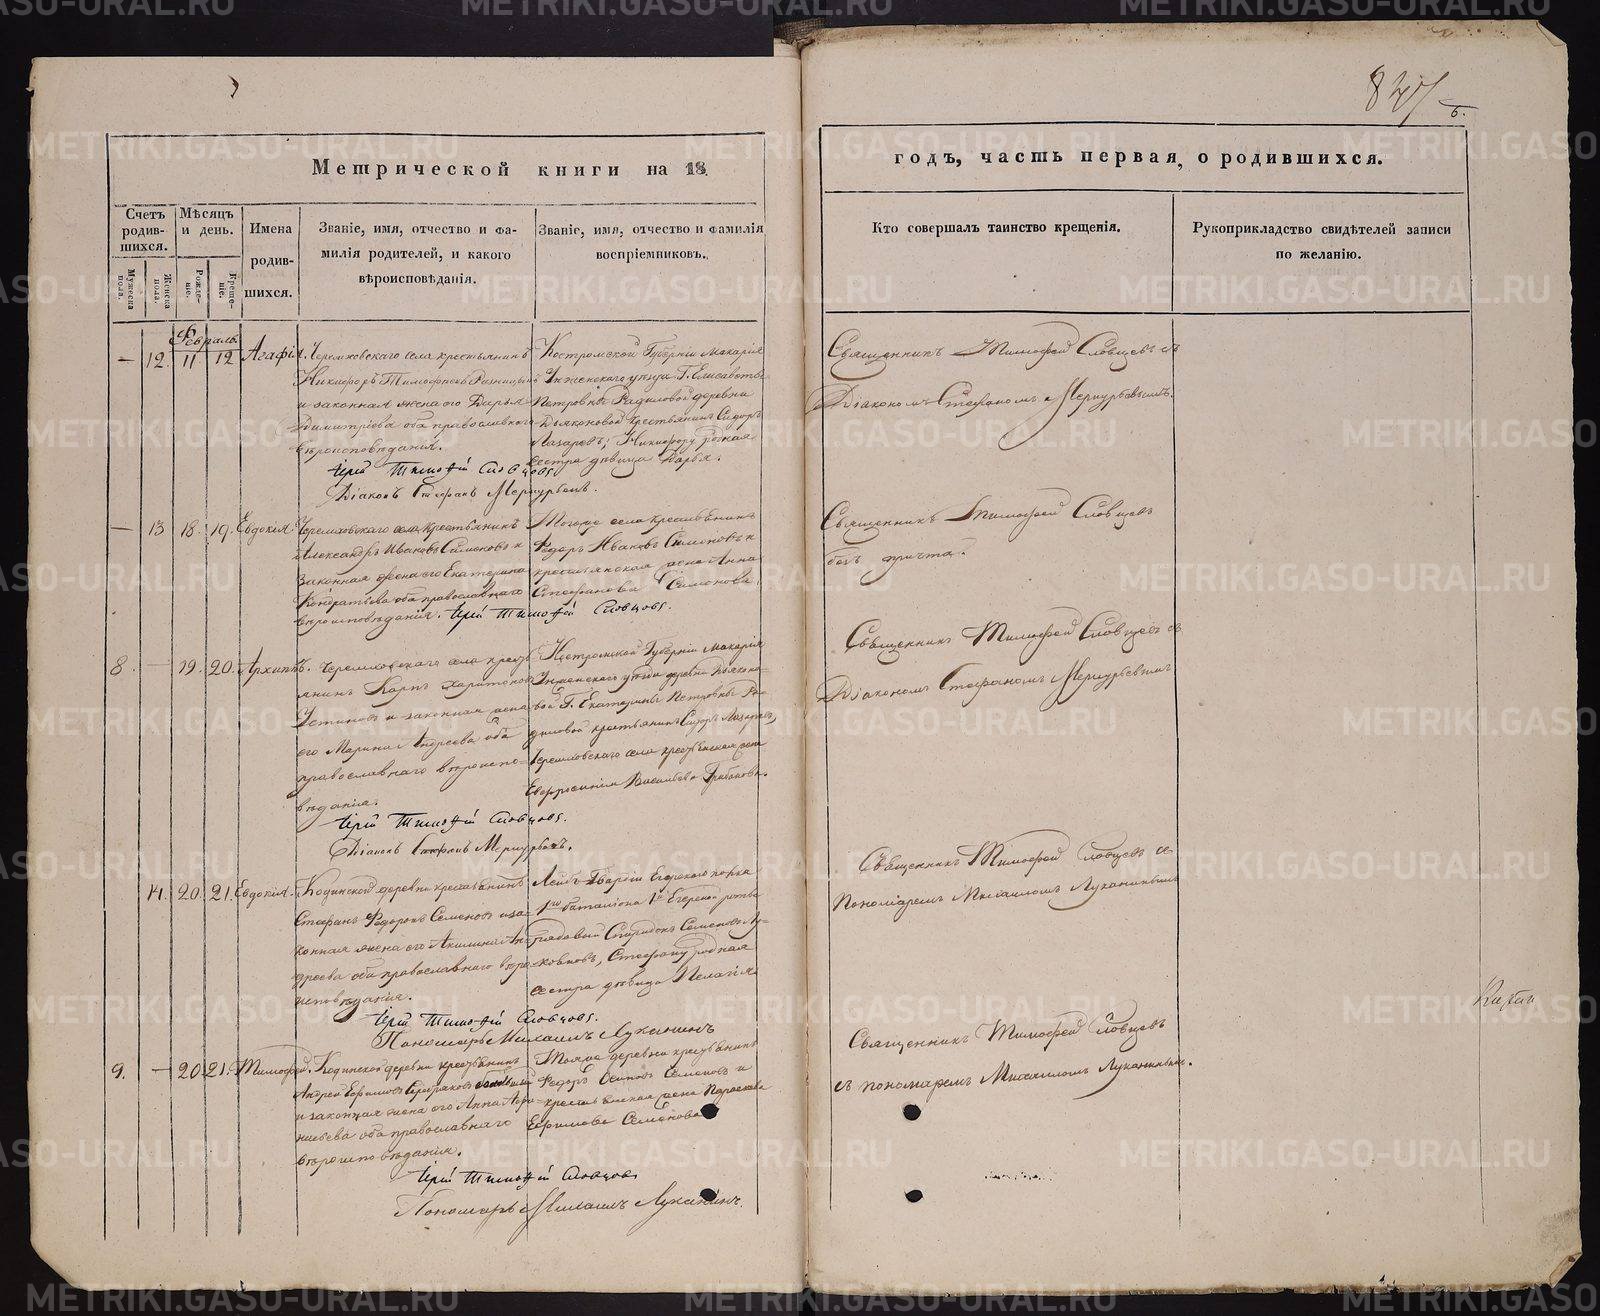 847
б.
Метрической книги на 18
годъ, часть первая, о родившихся.
Счетъ родившихся.
Мужеска пола.
Женска пола.
Мѣсяцъ и день.
Рожденіе.
Крещеніе.
Имена родившихся.
Званіе, имя, отчество и фамилія родителей, и какого вѣроисповѣданія.
Званіе, имя, отчество и фамилія воспріемниковъ.
Кто совершалъ таинство крещенія.
Рукоприкладство свидѣтелей записи по желанію.
Февраль
— 12. 11 12 Агафія.
Черемховскаго села крестьянинъ
Никифоръ Тимофеевъ
и законная жена его Дарья
Димитріева оба православнаго
вѣроисповѣданія.
Костромской Губерніи Макарія
Унженскаго уѣзда Г. Елисаветы
Петровны деревни
Дьяконовой крестьянинъ Сидоръ
Лазаревъ; Никифору родная
сестра дѣвица Дарья.
Іерей Тимофей Словцовъ.
Діаконъ Стефанъ Меркурьевъ.
Священникъ Тимофей Словцевъ съ
Діакономъ Стефаномъ Меркурьевымъ.
— 13 18. 19. Евдокія.
Черемховскаго села крестьянинъ
Александръ Ивановъ Симоновъ и
законная жена его Екатерина
Кондратьева оба православнаго
вѣроисповѣданія.
Тогоже села крестьянинъ
Федоръ Ивановъ Симоновъ и
крестьянская жена Анна
Стефанова Симонова.
Іерей Тимофей Словцовъ.
Священникъ Тимофей Словцевъ
безъ причта.
8. — 19. 20. Архиппъ.
Черемховскаго села кресть-
янинъ Карпъ Харитоновъ
Устиновъ и законная жена
его Марина Андреева оба
православнаго вѣроиспо-
вѣданія.
Костромской Губерніи Макарія
Унженскаго уѣзда деревни Дьяконо-
вой Г. Екатерины Петровны
крестьянинъ Сидоръ Лазаревъ,
Черемховскаго села крестьянская жена
Евфросинія Васильева
Іерей Тимофей Словцовъ.
Діаконъ Стефанъ Меркурьевъ.
Священникъ Тимофей Словцевъ съ
Діакономъ Стефаномъ Меркурьевымъ
14. 20. 21. Евдокія.
Кодинской деревни крестьянинъ
Стефанъ Федоровъ Семеновъ и за-
конная жена его Акилина Ан-
дреева оба православнаго вѣро-
исповѣданія.
Лейбъ Гвардіи Егерскаго полка
1го баталіона 1й Егерской роты
рядовый Спиридонъ Семеновъ
Стефану родная
сестра дѣвица Пелагія
Іерей Тимофей Словцовъ.
Пономарь Михаилъ Луканинъ
Священникъ Тимофей Словцевъ съ
Пономаремъ Михаиломъ Луканинымъ
9. — 20. 21. Тимофей.
Кодинской деревни крестьянинъ
Андрей Ефимовъ
и законная жена его Анна Афо-
насьева оба православнаго
вѣроисповѣданія.
Тояже деревни крестьянинъ
Федоръ Осиповъ Семеновъ и
крестьянская жена Параскева
Ефимова Семенова
Іерей Тимофей Словцовъ
Пономарь Михаилъ Луканинъ.
Священникъ Тимофей Словцевъ
съ пономаремъ Михаиломъ Луканинымъ.
METRIKI.GASO-URAL.RU